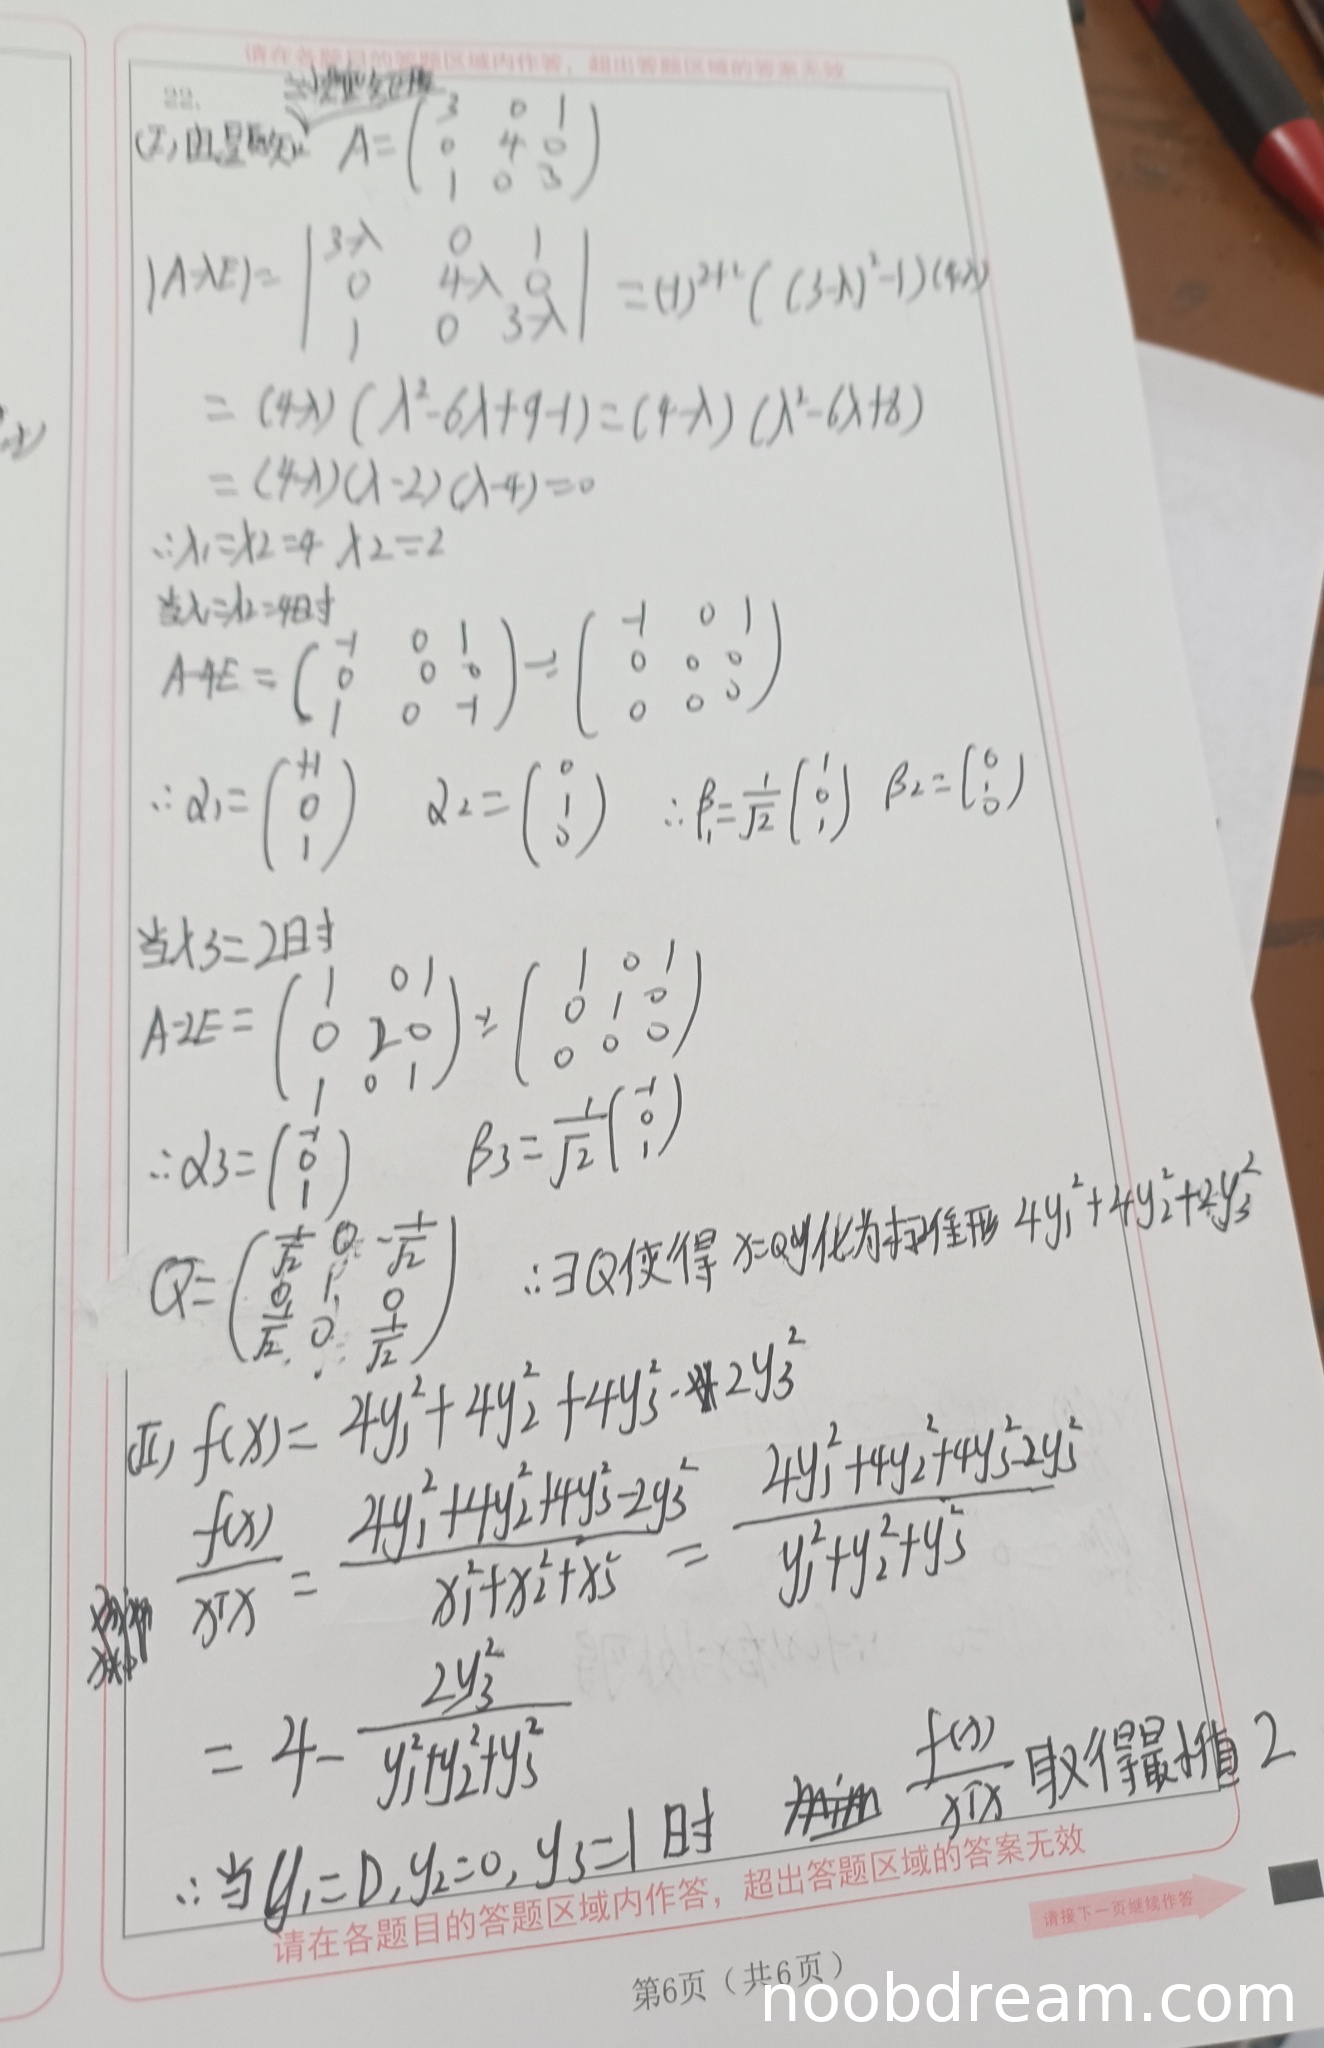 请在各题目的答题区域内作答，超出答题区域的答案无效
22.
(I) 由题知 A=(3 0 1
0 4 0
1 0 3)
|A-λE|=|3-λ 0 1
0 4-λ 0
1 0 3-λ| =(-1)²⁺²((3-λ)²-1)(4-λ)
=(4-λ)(λ²-6λ+9-1)=(4-λ)(λ²-6λ+8)
=(4-λ)(λ-2)(λ-4)=0
∴λ₁=λ₂=4 λ₂=2
当λ₁=λ₂=4时
A-4E=(-1 0 1
0 0 0
1 0 -1)→(-1 0 1
0 0 0
0 0 0)
∴α₁=(+1
0
1) α₂=(0
1
0) ∴β₁=1/√2(1
0
1) β₂=(0
1
0)
当λ₃=2时
A-2E=(1 0 1
0 2 0
1 0 1)→(1 0 1
0 1 0
0 0 0)
∴α₃=(-1
0
1) β₃=1/√2(-1
0
1)
Q=(1/√2 0 -1/√2
0 1 0
1/√2 0 1/√2) ∴∃Q使得x=Qy化为标准形 4y₁²+4y₂²+2y₃²
(II) f(x)=4y₁²+4y₂²+4y₃²-2y₃²
f(x)/xᵀx=(4y₁²+4y₂²+4y₃²-2y₃²)/(x₁²+x₂²+x₃²)=(4y₁²+4y₂²+4y₃²-2y₃²)/(y₁²+y₂²+y₃²)
=4-2y₃²/(y₁²+y₂²+y₃²)
∴当y₁=0,y₂=0,y₃=1时 f(x)/xᵀx取得最小值2
请在各题目的答题区域内作答，超出答题区域的答案无效
请接下一页继续作答
第6页（共6页）
noobdream.com